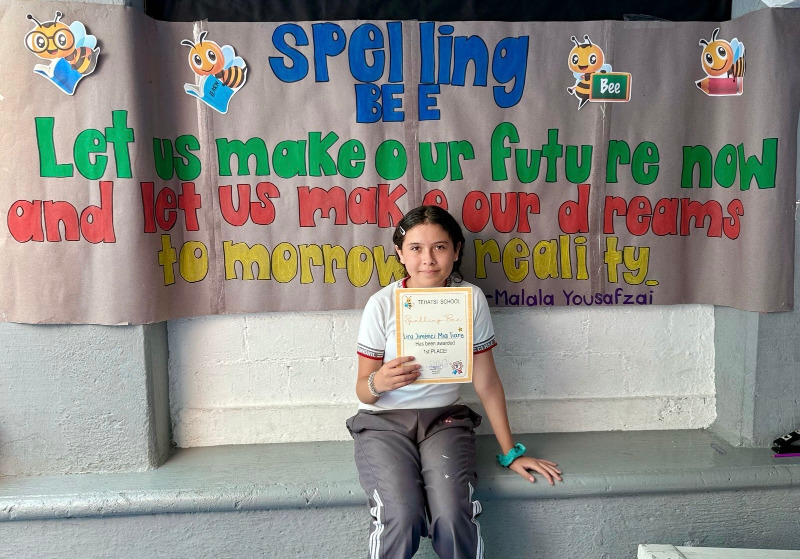 Spelling
BEE
Bee
Let us make our future now
and let us make our dreams
tomorrow reality.
-Malala Yousafzai
TEHATSI SCHOOL
Spelling Bee
Has been awarded
1st PLACE!